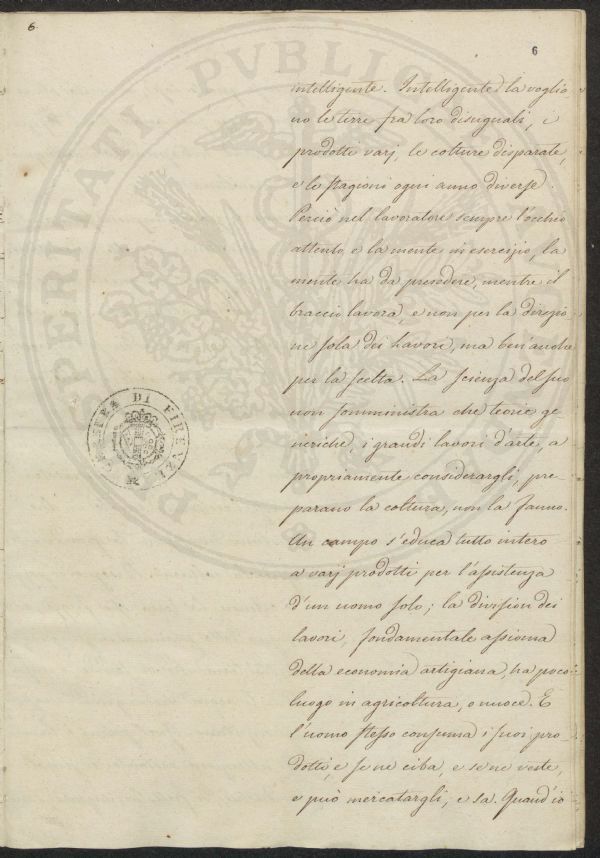 6
6
intelligente. Intelligente la voglio
no le terre fra loro disuguali, e
prodotti varj, le colture disparate,
e le stagioni ogni anno diverse.
Perciò nel lavoratore sempre l'occhio
attento e la mente in esercizio, la
mente ha da presedere, mentre il
braccio lavora, e non per la direzio-
ne sola dei lavori, ma ben'anche
per la scelta. La scienza del suo
non somministra che teorie ge
neriche, i grandi lavori d'arte, a
propriamente considerargli, pre
parano la coltura, non la fanno.
Un campo s'educa tutto intero
a varj prodotti per l'assistenza
d'un uomo solo; la division dei
lavori, fondamentale assioma
della economia artigiana, ha poco
luogo in agricoltura, o nuoce. E
l'uomo stesso consuma i suoi pro-
dotti, e se ne ciba, e se ne veste,
e può mercatargli, e sa. Quand'io
PROSPERITATI PVBLICAE
DI FIRENZE